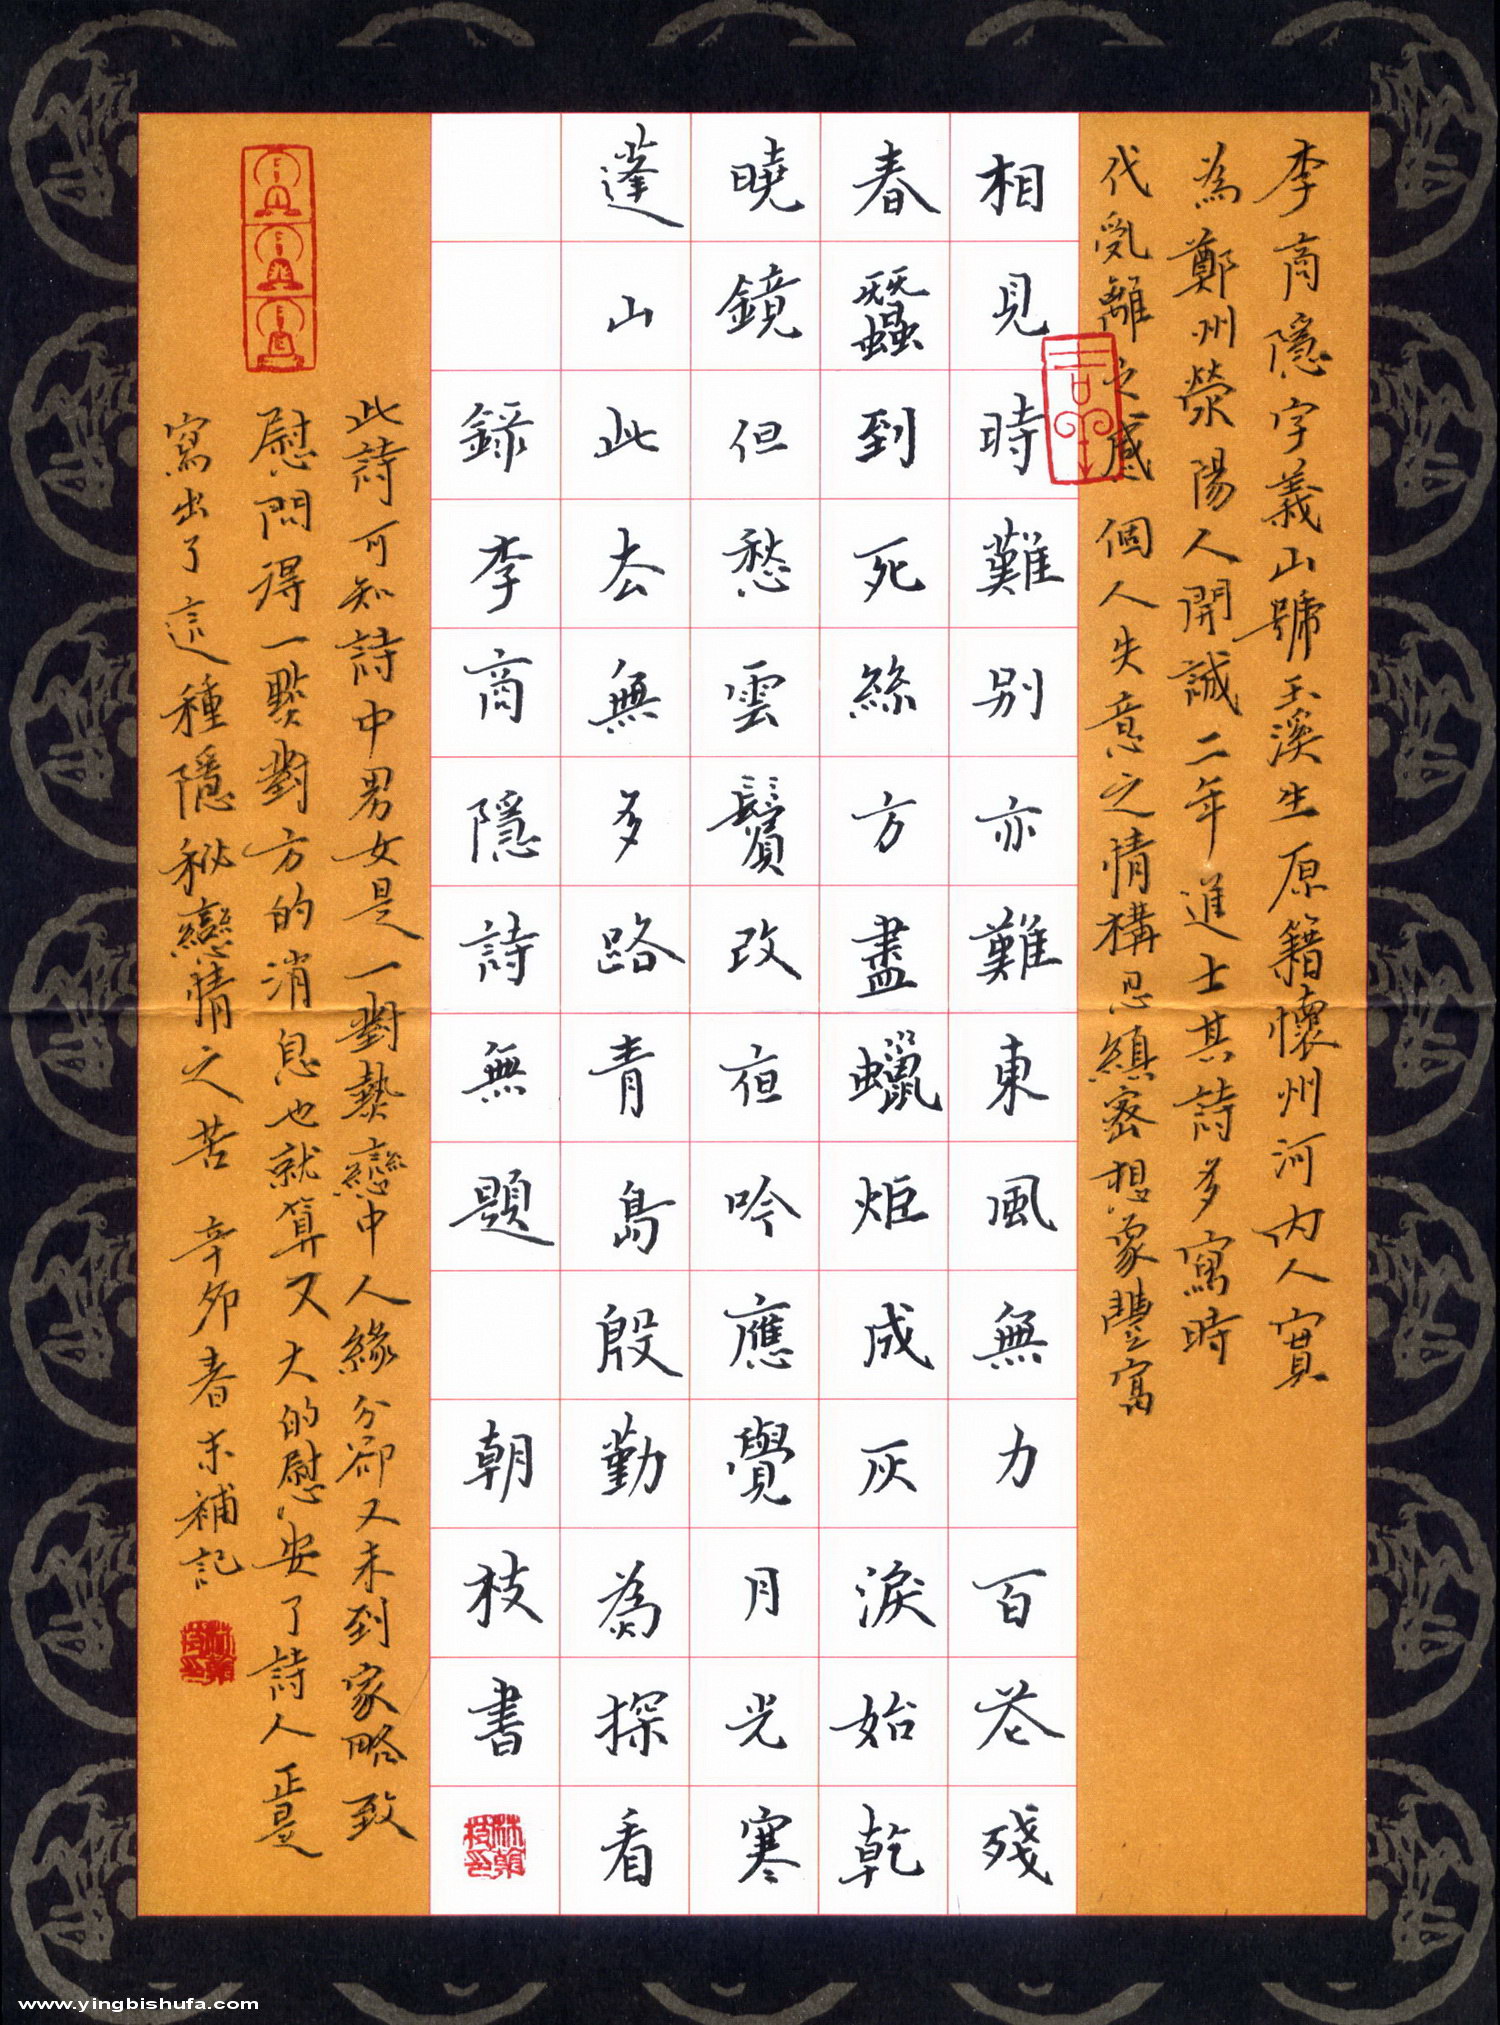 李商隱字義山號玉溪生原籍懷州河內人實
為鄭州滎陽人開誠二年進士其詩多寫時
代亂離之感個人失意之情構思縝密想象豐富
相見時難別亦難東風無力百花殘
春蠶到死絲方盡蠟炬成灰淚始乾
曉鏡但愁雲鬢改夜吟應覺月光寒
蓬山此去無多路青鳥殷勤為探看
錄李商隱詩無題 朝枝書
此詩可知詩中男女是一對熱戀中人緣分卻又未到家略致
慰問得一點對方的消息也就算又大的慰安了詩人正是
寫出了這種隱秘戀情之苦 辛卯春末補記
www.yingbishufa.com